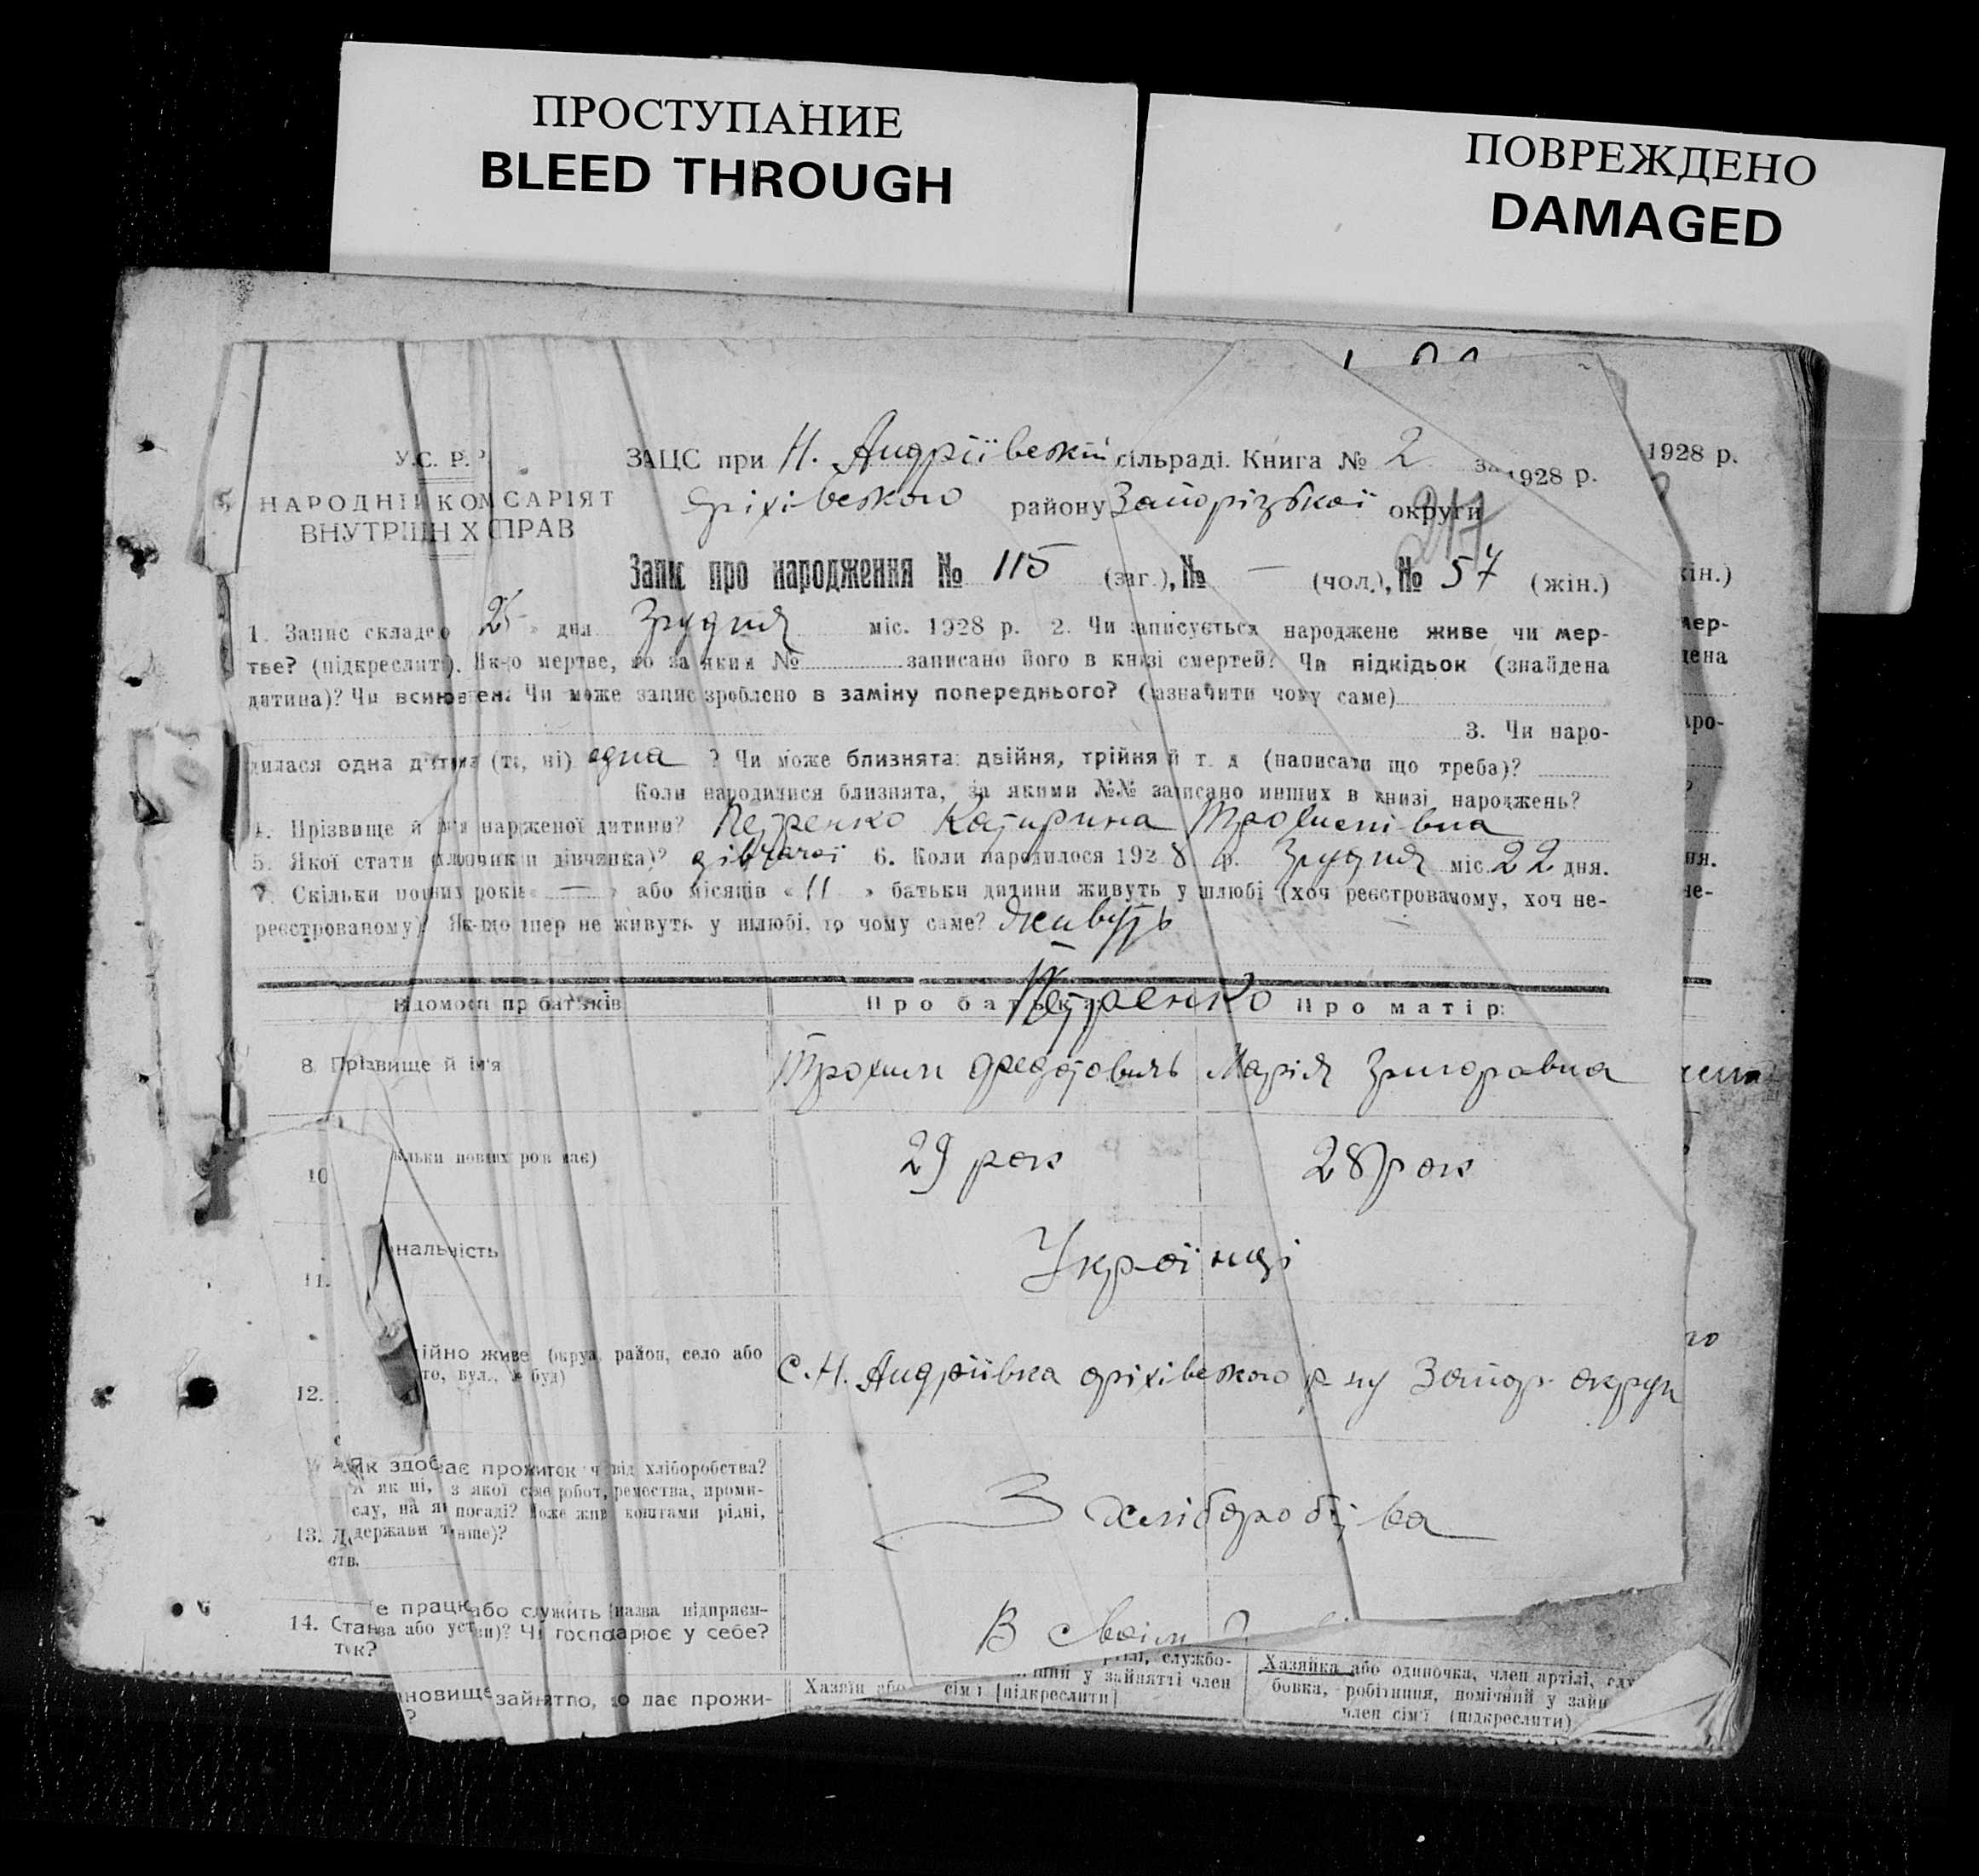 ПРОСТУПАНИЕ
BLEED THROUGH
ПОВРЕЖДЕНО
DAMAGED
У.С.Р.Р.
НАРОДНІЙ КОМІСАРІЯТ
ВНУТРІШНІХ СПРАВ
ЗАЦС при Н. Андріївській сільраді. Книга № 2 за 1928 р.
1928 р.
Оріхівського району Запорізької округи
Запис про народження № 115 (заг.), № — (чол.), № 57 (жін.)
жін.)
1. Запис складено 25 дня Грудня міс. 1928 р. 2. Чи записується народжене живе чи мер-
тве? (підкреслити). Якщо мертве, то за яким № записано його в книзі смертей? Чи підкідьок (знайдена
дитина)? Чи всиновлена Чи може запис зроблено в заміну попереднього? (зазначити чому саме)
3. Чи наро-
дилася одна дитина (так, ні) одна ? Чи може близнята: двійня, трійня й т. д (написати що треба)?
Коли народилися близнята, за якими №№ записано инших в книзі народжень?
4. Прізвище й ім'я народженої дитини? Петренко Катирина Трохимівна
5. Якої статі (хлопчик чи дівчинка)? дівчачої 6. Коли народилося 1928 р. Грудня міс. 22 дня.
7. Скільки повних років « — » або місяців « 11 » батьки дитини живуть у шлюбі (хоч реєстрованому, хоч не-
реєстрованому) Якщо тепер не живуть у шлюбі, то чому саме? живуть
Відомості про батьків Про батька: Петренко Про матір:
8. Прізвище й ім'я Трохим Федотович Марія Григоравна
10 кільки повних років має) 29 рок 28 рок
11. ональність Українці
ійно живе (округа, район, село або
то, вул., № буд)
12. С. Н. Андріівка Оріхівського р-ну Запор. округи
Як здобуває прожиток чи від хліборобства?
А як ні, з якої саме робот, ремества, проми-
слу, на якій посаді? Може живе коштами рідні,
13. держави т. инше)?
ств.
З хліборобства
е працює або служить (назва підприєм-
14. ства або установи)? Чи господарює у себе?
В своїм
ток?
ановище зайнятто, що дає прожи-
?
Хазяїн або
службо-
у зайнятті член
сім'ї [підкреслити]
Хазяйка або одиночка, член артілі, слу
бовка, робітниця, помічний у зайн
член сім'ї (підкреслити)